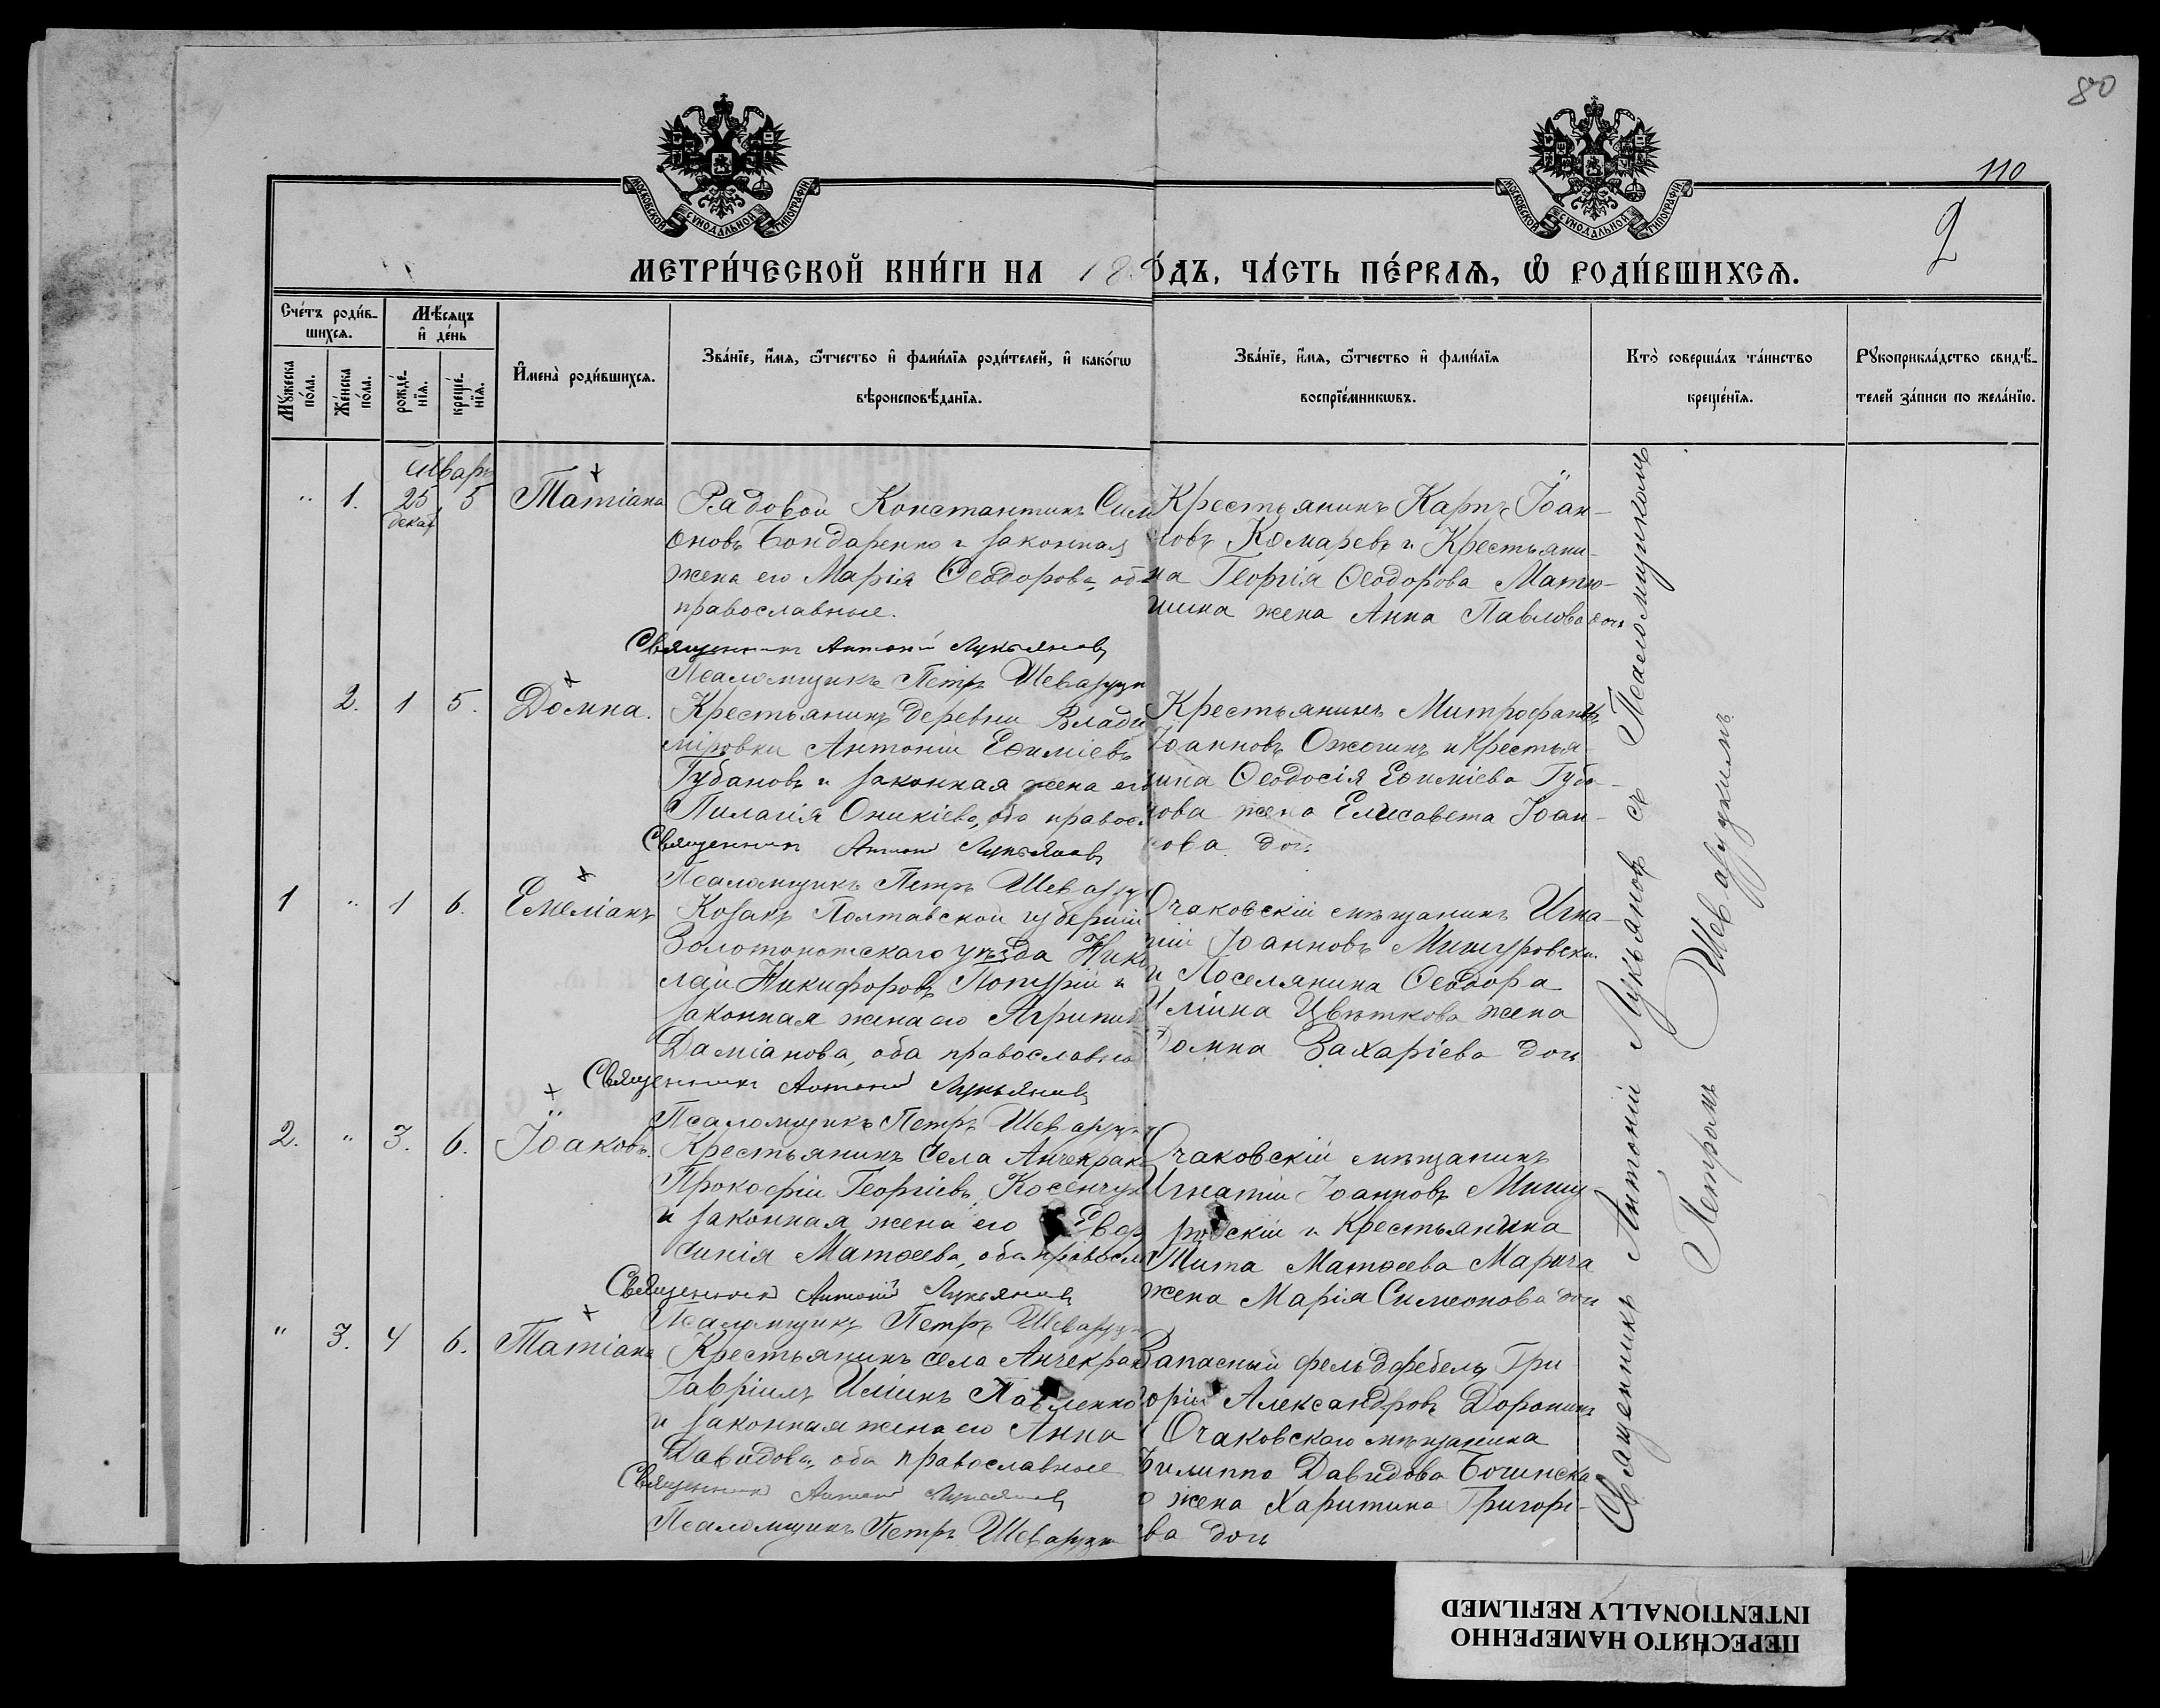 80
110
2
МОСКОВСКОЙ СѴНОДАЛЬНОЙ ТИПОГРАФІИ
МОСКОВСКОЙ СѴНОДАЛЬНОЙ ТИПОГРАФІИ
МЕТРИ́ЧЕСКОЙ КНИ́ГИ НА 18 О́ДЪ, ЧА́СТЬ ПЕ́РВАѦ, Ѡ҆ РОДИ́ВШИХСѦ.
Сче́тъ роди́в-
шихсѧ.
Мѣ́сѧцъ
и҆ де́нь
Мꙋ́жеска по́ла.
Же́нска по́ла.
рожде́-нїѧ.
креще́-нїѧ.
И҆мена̀ роди́вшихсѧ.
Зва́нїе, и҆́мѧ, ѻ҆́тчество и҆ фами́лїѧ роди́телей, и҆ како́гѡ
вѣроисповѣ́данїѧ.
Зва́нїе, и҆́мѧ, ѻ҆́тчество и҆ фами́лїѧ
воспрїе́мникѡвъ.
Кто̀ соверша́лъ та́инство
креще́нїѧ.
Рꙋкоприкла́дство свидѣ́-
телей за́писи по жела́нїю.
Январь
" 1. 25 5 Татіана
декаб
Рядовой Константинъ Сим
оновъ Бондаренко и законная
жена его Марія Ѳеодорова, об
православные.
Священникъ Антоній Лукьяновъ
Псаломщикъ Петръ Шевару
Крестьянинъ Карпъ Іоан-
новъ Комаревъ и Крестьяни-
на Георгія Ѳеодорова Матю-
шина жена Анна Павлова дочь
2. 1 5. Домна.
Крестьянинъ деревни Влади
міровки Антоній Евѳиміевъ
Губановъ и законная жена его
Пилагія Оникіева, оба правос
Священникъ Антоній Лукьяновъ
Псаломщикъ Петръ Шевару
Крестьянинъ Митрофанъ
Іоанновъ Ожогинъ и Крестья-
нина Ѳеодосія Евѳиміева Губа-
нова жена Елисавета Іоан-
нова дочь
1 " 1 6. Емеліанъ
Козакъ Полтавской губерніи
Золотоношскаго уѣзда Нико
лай Никифоровъ и
законная жена его Агрипин
Даміанова, оба православно
Священникъ Антоній Лукьяновъ
Псаломщикъ Петръ Шевару
Очаковскій мѣщанинъ Игна-
тій Іоанновъ Мишуровскій
и Поселянина Ѳеодора
Иліина Цвѣткова жена
Домна Захаріева дочь
2. " 3. 6. Іоаковъ.
Крестьянинъ села Анчекрак
Прокофій Георгіевъ Косенчук
и законная жена его Евфр
синія Матѳеева, оба правосла
Священникъ Антоній Лукьяновъ
Псаломщикъ Петръ Шевару
Очаковскій мѣщанинъ
Игнатій Іоанновъ Мишу-
ровскій и Крестьянина
Тита Матѳеева Марича
жена Марія Симеонова дочь
" 3. 4 6. Татіана
Крестьянинъ села Анчекрак
Гавріилъ Иліинъ Павленко
и законная жена его Анна
Давидова, оба православные
Священникъ Антоній Лукьяновъ
Псаломщикъ Петръ Шевару
Запасный фельдфебель Гри
горій Александровъ Доронинъ
и Очаковскаго мѣщанина
Филиппа Давидова
жена Харитина Григорі-
ева дочь
Священникъ Антоній Лукьяновъ съ Псаломщикомъ
Петромъ
ПЕРЕСНЯТО НАМЕРЕННО
INTENTIONALLY REFILMED